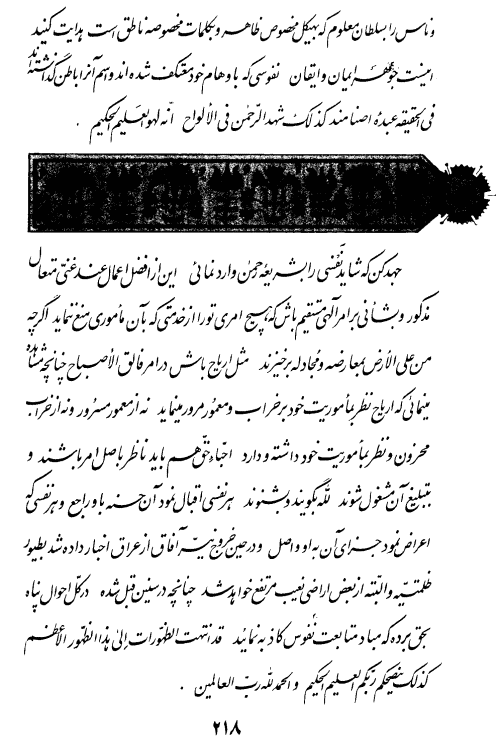 و ناس را بسلطان معلوم که بهیکل مخصوص ظاهر و بکلمات مخصوصه ناطق است هدایت کنید
اینست جوهر ایمان و ایقان نفوسی که باوهام خود معتکف شده‌اند و اسم آنرا باطن گذاشته‌اند
فی الحقیقه عبده اصنامند کذلک شهد الرّحمن فی الألواح انّه لهو العلیم الحکیم .
جهد کن که شاید نفسی را بشریعهٔ رحمن وارد نمائی این از افضل اعمال عند غنیّ متعال
مذکور و بشأنی بر امر الهی مستقیم باش که هیچ امری تو را از خدمتی که بآن مأموری منع ننماید اگرچه
من علی الأرض بمعارضه و مجادله برخیزند مثل اریاح باش در امر فالق الأصباح چنانچه مشاهده
مینمائی که اریاح نظر بمأموریت خود بر خراب و معمور مرور مینماید نه از معمور مسرور و نه از خراب
محزون و نظر بمأموریت خود داشته و دارد احبّاء حقّ هم باید ناظر باصل امر باشند و
بتبلیغ آن مشغول شوند للّه بگویند و بشنوند هر نفسی اقبال نمود آن حسنه باو راجع و هر نفسی که
اعراض نمود جزای آن به او واصل و در حین خروج نیّر آفاق از عراق اخبار داده شد بطیور
ظلمتیّه و البتّه از بعض اراضی نعیب مرتفع خواهد شد چنانچه در سنین قبل شده در کلّ احوال پناه
بحق برده که مباد متابعت نفوس کاذبه نمائید قد انتهت الظهورات الی هذا الظّهور الأعظم
کذلک ینصحکم ربّکم العلیم الحکیم و الحمد للّه ربّ العالمین .
۲۱۸